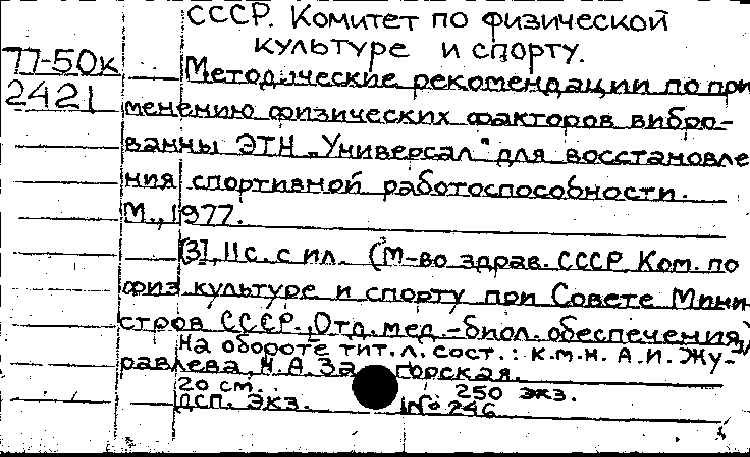 СССР. Комитет по физической
культуре и спорту.
77-50к
Методические рекомендации по при
2421
менению физических факторов вибро-
ванны ЭТН „Универсал" для восстановле
ния спортивной работоспособности.
М., 1977.
[3], 11 с. с ил. (М-во здрав. СССР. Ком. по
физ. культуре и спорту при Совете Мини
стров СССР., Отд. мед.-биол. обеспечения)
На обороте тит. л. сост.: к.м.н. А.И. Жу-
равлева, Н.А. За горская.
20 см. 250 экз.
ДСП. Экз. №246